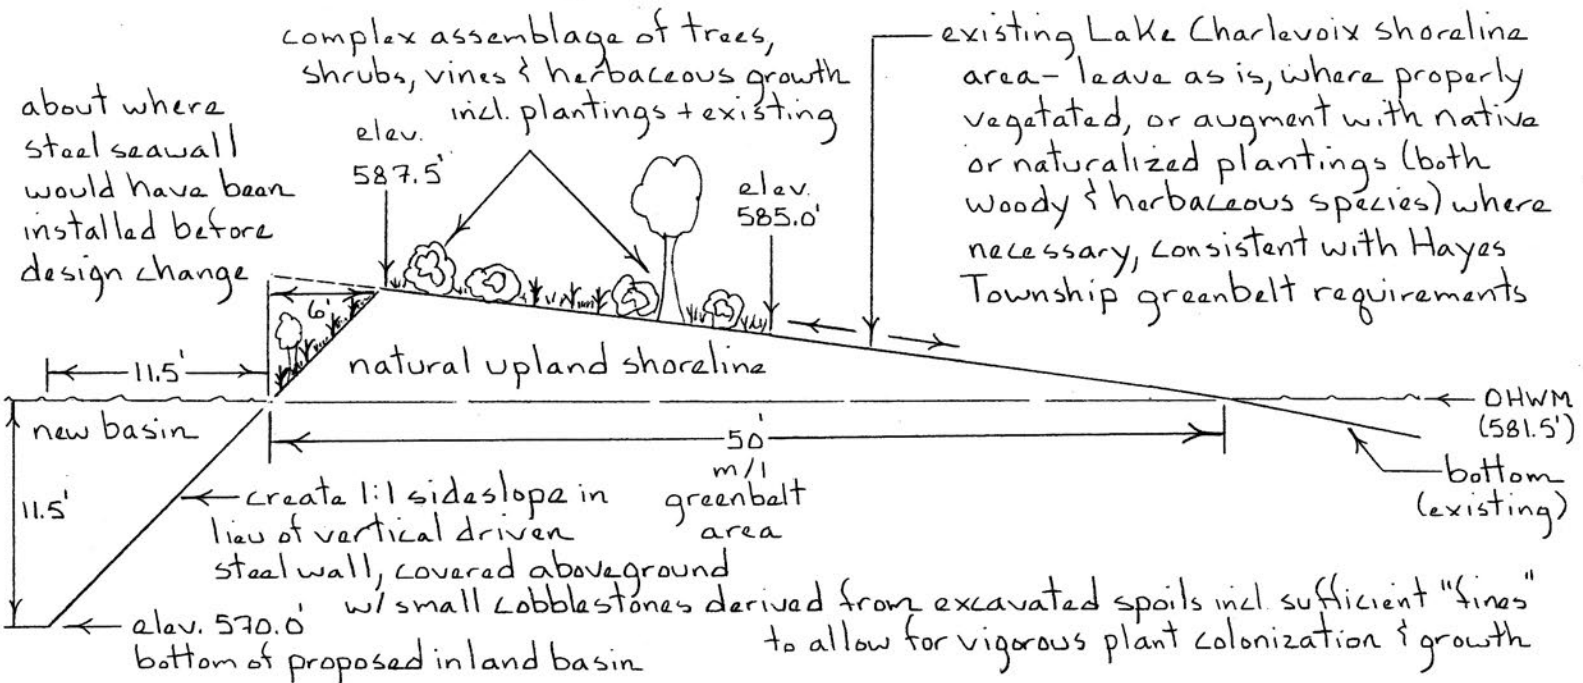 complex assemblage of trees,
shrubs, vines & herbaceous growth
incl. plantings + existing
existing Lake Charlevoix shoreline
area - leave as is, where properly
vegetated, or augment with native
or naturalized plantings (both
woody & herbaceous species) where
necessary, consistent with Hayes
Township greenbelt requirements
about where
steel seawall
would have been
installed before
design change
elev.
587.5'
elev.
585.0'
6'
natural upland shoreline
11.5'
new basin
OHWM
(581.5')
50'
m/l
greenbelt
area
bottom
(existing)
11.5'
create 1:1 sideslope in
lieu of vertical driven
steel wall, covered aboveground
w/ small cobblestones derived from excavated spoils incl. sufficient "fines"
to allow for vigorous plant colonization & growth
elev. 570.0'
bottom of proposed inland basin